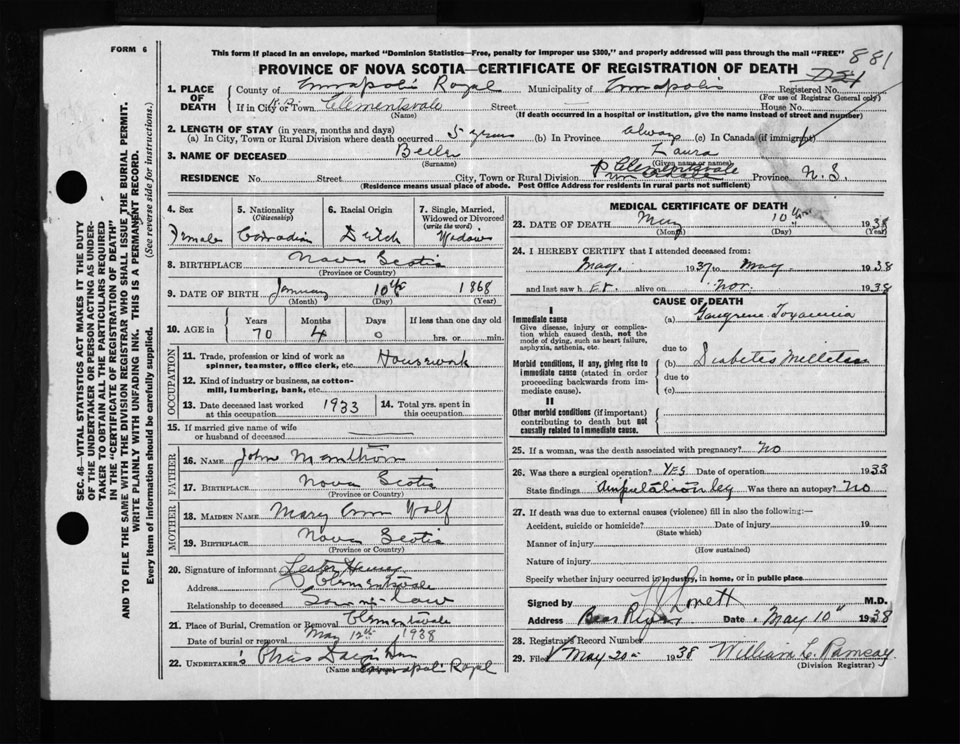 FORM 6
This form if placed in an envelope, marked "Dominion Statistics—Free, penalty for improper use $300," and properly addressed will pass through the mail "FREE"
881
PROVINCE OF NOVA SCOTIA—CERTIFICATE OF REGISTRATION OF DEATH
1. PLACE OF DEATH
County of Annapolis Royal Municipality of Annapolis Registered No.
(For use of Registrar General only)
If in City or Town Clementsvale Street House No.
(Name) (If death occurred in a hospital or institution, give the name instead of street and number)
2. LENGTH OF STAY (in years, months and days)
(a) In City, Town or Rural Division where death occurred 5 years (b) In Province always (c) In Canada (if immigrant)
3. NAME OF DECEASED Laura
(Surname) (Given name or names)
RESIDENCE No. Street City, Town or Rural Division Clementsvale Province N.S.
(Residence means usual place of abode. Post Office Address for residents in rural parts not sufficient)
4. Sex Female
5. Nationality (Citizenship) Canadian
6. Racial Origin Dutch
7. Single, Married, Widowed or Divorced (write the word) Widow
8. BIRTHPLACE Nova Scotia
(Province or Country)
9. DATE OF BIRTH January 10th 1868
(Month) (Day) (Year)
10. AGE in Years Months Days If less than one day old
70 4 0 hrs. or min.
OCCUPATION
11. Trade, profession or kind of work as spinner, teamster, office clerk, etc. Housework
12. Kind of industry or business, as cotton-mill, lumbering, bank, etc.
13. Date deceased last worked at this occupation 1933
14. Total yrs. spent in this occupation
15. If married give name of wife or husband of deceased
FATHER
16. NAME John
17. BIRTHPLACE Nova Scotia
(Province or Country)
MOTHER
18. MAIDEN NAME Mary Ann Wolf
19. BIRTHPLACE Nova Scotia
(Province or Country)
20. Signature of informant Lester
Address Clementsvale
Relationship to deceased Son-in-law
21. Place of Burial, Cremation or Removal Clementsvale
Date of burial or removal May 12th 1938
22. UNDERTAKER'S Chas
(Name and Annapolis Royal
MEDICAL CERTIFICATE OF DEATH
23. DATE OF DEATH May 10th 1938
(Month) (Day) (Year)
24. I HEREBY CERTIFY that I attended deceased from:
May 1937 to May 1938
and last saw h er alive on Nov. 1938
CAUSE OF DEATH
I
Immediate cause
Give disease, injury or complication which caused death, not the mode of dying, such as heart failure, asphyxia, asthenia, etc.
(a) Gangrene Toxaemia
due to
Morbid conditions, if any, giving rise to immediate cause (stated in order proceeding backwards from immediate cause).
(b) Diabetes Mellitus
due to
(c)
II
Other morbid conditions (if important) contributing to death but not causally related to immediate cause.
25. If a woman, was the death associated with pregnancy? No
26. Was there a surgical operation? Yes Date of operation 1933
State findings Amputation leg Was there an autopsy? No
27. If death was due to external causes (violence) fill in also the following:—
Accident, suicide or homicide? Date of injury 19
(State which)
Manner of injury
(How sustained)
Nature of injury
Specify whether injury occurred in industry, in home, or in public place
Signed by Lovett M.D.
Address Bear River Date May 10th 1938
28. Registrar's Record Number
29. Filed May 20th 1938 William L. Ramsay
(Division Registrar)
SEC. 46—VITAL STATISTICS ACT MAKES IT THE DUTY
OF THE UNDERTAKER OR PERSON ACTING AS UNDER-
TAKER TO OBTAIN ALL THE PARTICULARS REQUIRED
IN THE "CERTIFICATE OF REGISTRATION OF DEATH"
AND TO FILE THE SAME WITH THE DIVISION REGISTRAR WHO SHALL ISSUE THE BURIAL PERMIT.
WRITE PLAINLY WITH UNFADING INK. THIS IS A PERMANENT RECORD.
Every item of information should be carefully supplied. (See reverse side for instructions.)